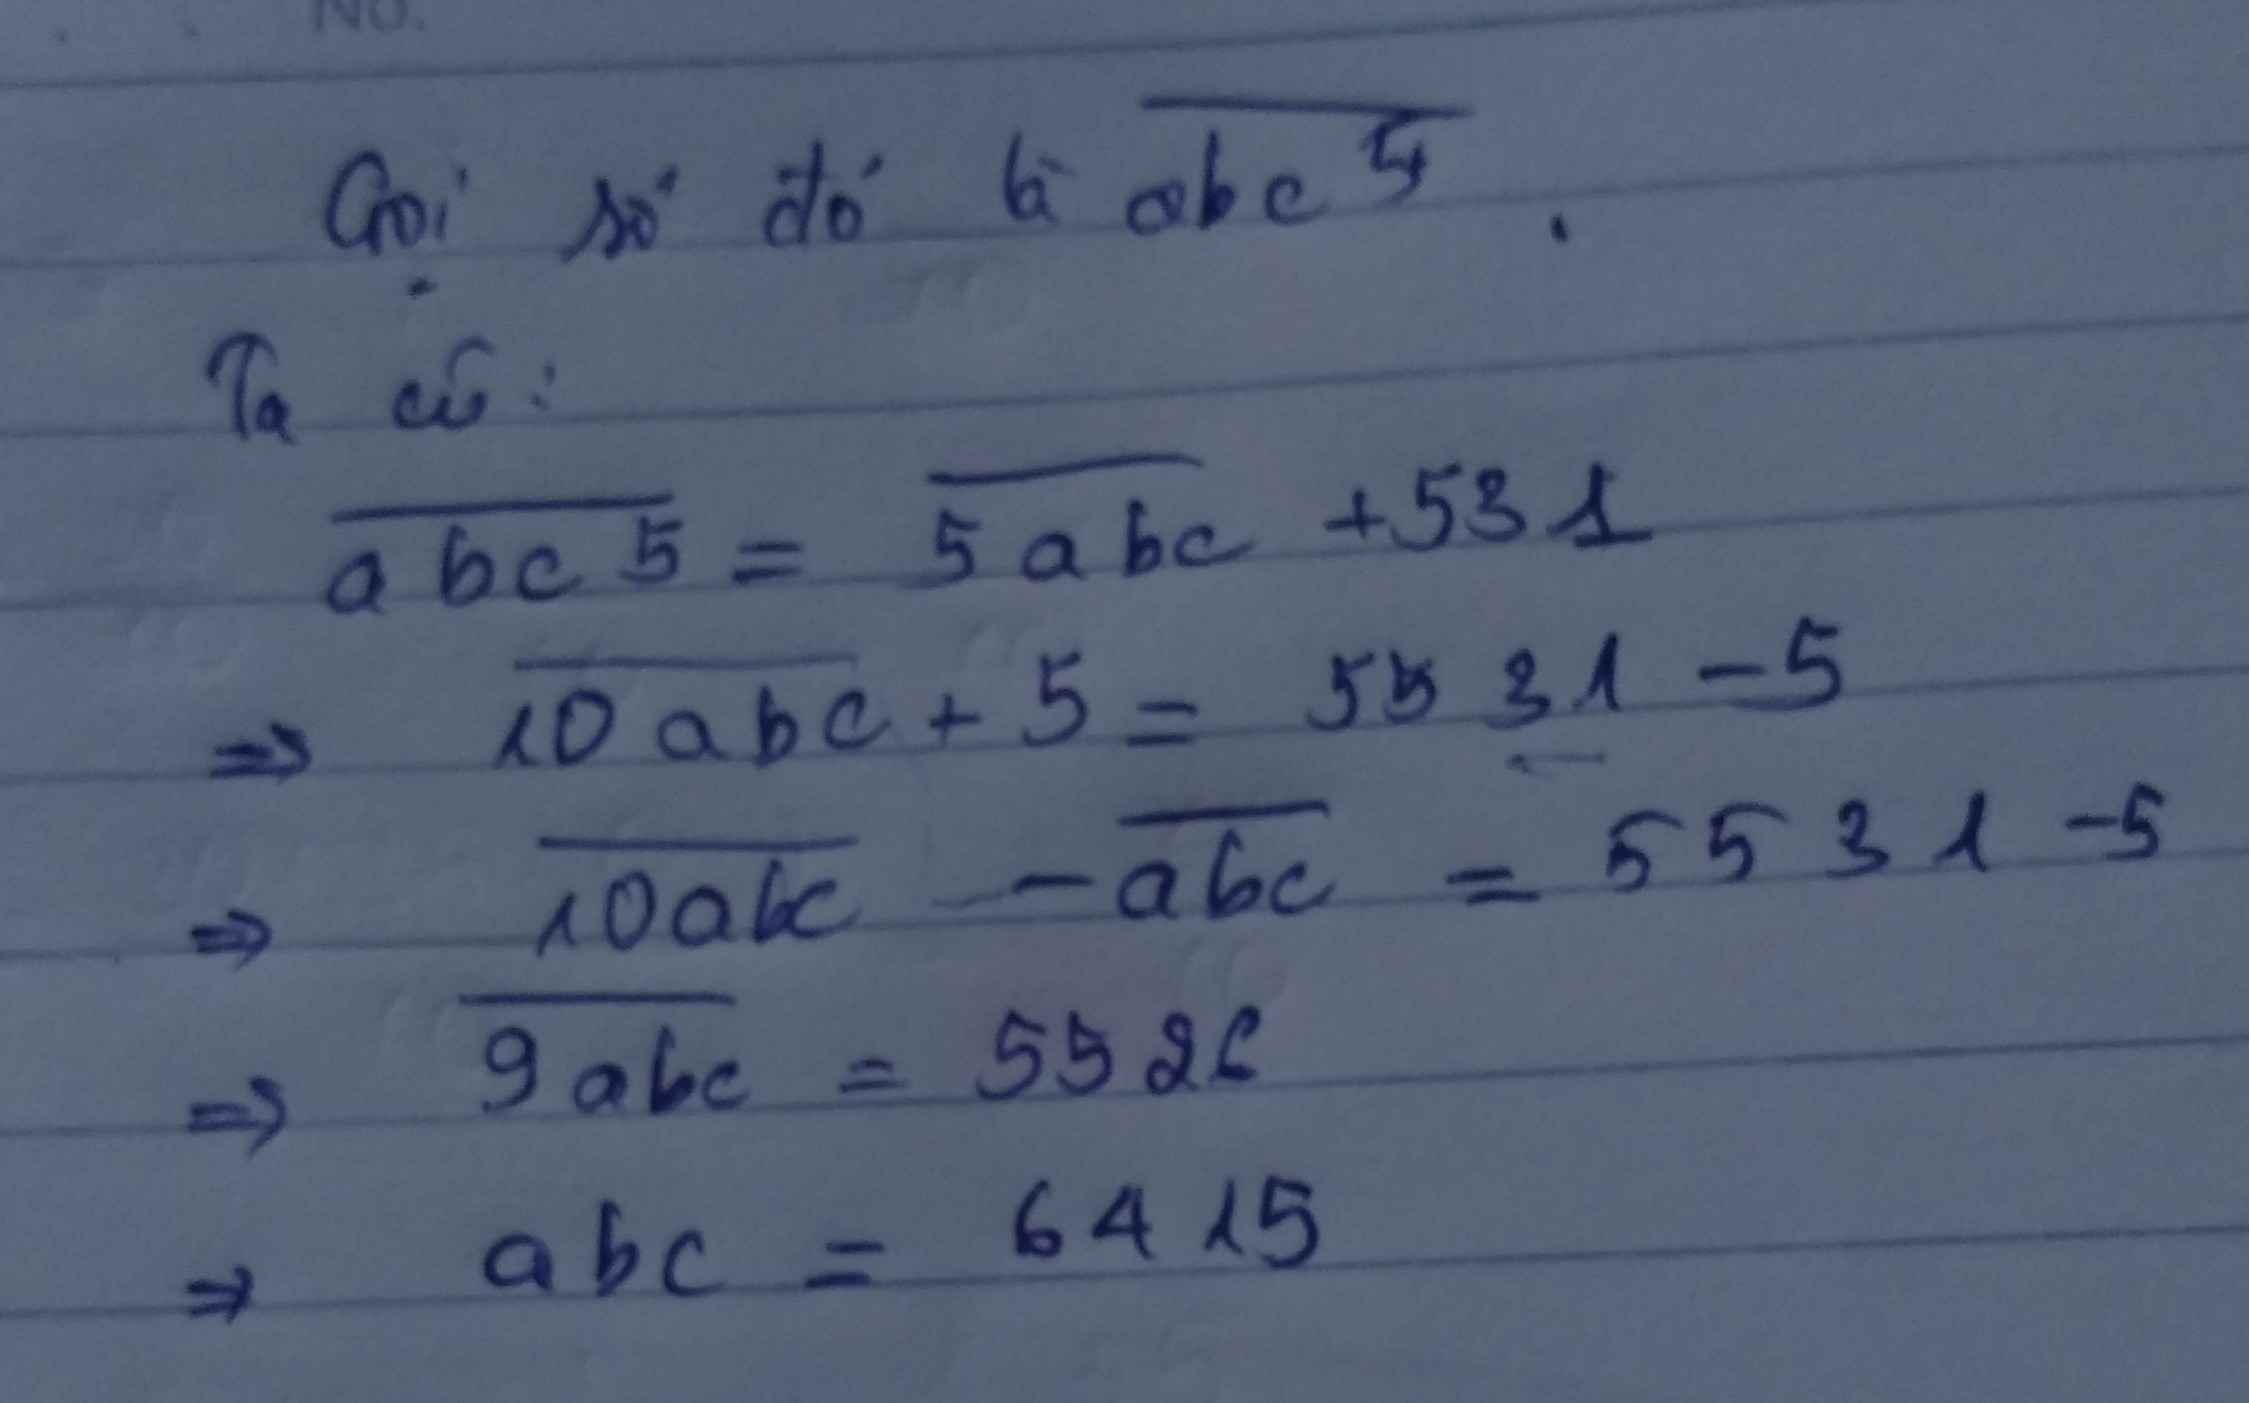 No.
Gọi số đó là abc5.
Ta có:
abc5 = 5abc + 531
⇒ 10abc + 5 = 5531 - 5
⇒ 10abc - abc = 5531 - 5
⇒ 9abc = 5526
⇒ abc = 6415